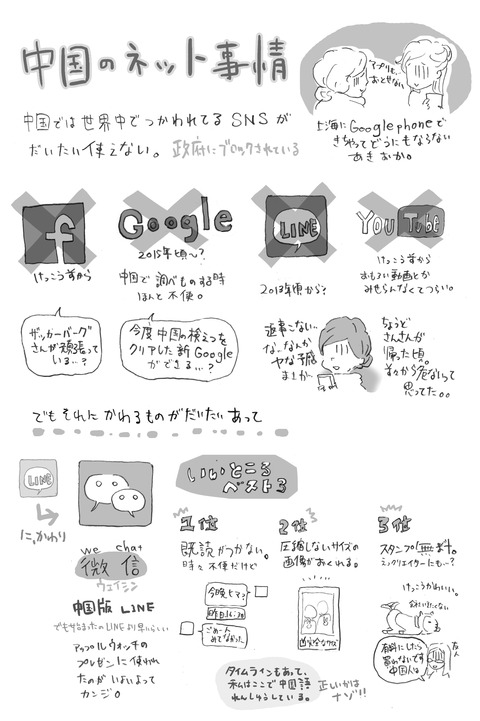 中国のネット事情
中国では世界中でつかわれてるSNSが
だいたい使えない。政府にブロックされている
アプリも、
おとせない
上海にGoogle phoneで
きちゃってどうにもならない
あきおか。
f
けっこう前から
Google
2015年頃〜?
中国で調べものする時
ほんと不便。
LINE
2013年頃から?
YouTube
けっこう前から
おもろい動画とか
みせらんなくてつらい。
ザッカーバーグ
さんが頑張って
いる…?
今度中国の検えつを
クリアした新Google
ができる…?
返事こない、
な、なんか
ヤな予感
まさか…
ちょうど
さんさんが
帰った頃。
前々から危ないって
思ってた。。
でもそれにかわるものがだいたいあって
LINE
にかわり
we chat
微信
ウェイシン
中国版LINE
でも始まったのLINEより早いらしい
アップルウォッチの
プレゼンに使われ
たのがいまいよって
カンジ。
いいところ
ベスト3
1位
既読がつかない。
時々不便だけど
今晩ヒマ?
昨日16:28
ごめーん
みてなかった
2位
圧縮しないサイズの
画像がおくれる。
完全なサイズ
3位
スタンプ無料。
ミニクリエイターにも…?
けっこうかわいい。
有料にしたら
買わないです
中国人は
友人
タイムラインもあって、
私はここで中国語
れんしゅうしている。
正しいかは
ナゾ!!